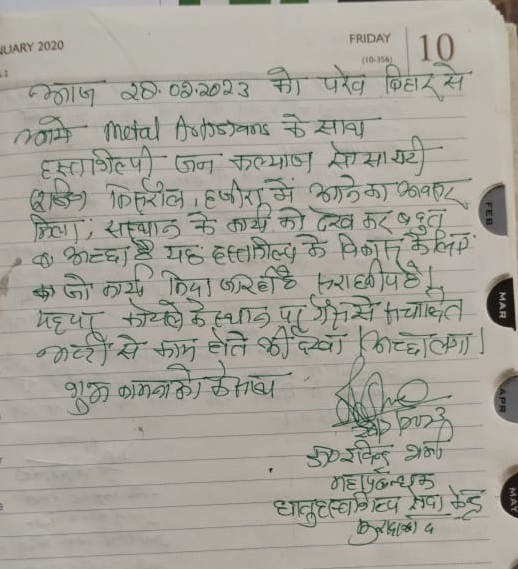 UARY 2020
FRIDAY
(10-356)
10
आज 28.02.2023 को परेव बिहार से
आये Metal Artisans के साथ
हस्तशिल्पी जन कल्याण सोसायटी
में आने का अवसर
मिला, संस्थान के कार्य को देख कर बहुत
अच्छा है यह हस्तशिल्प के विकास के लिए
जो कार्य किया जा रहा है सराहनीय है।
कोयले के स्थान पर गैस से संचालित
भट्टी से काम होते भी देखा अच्छा लगा।
शुभ कामनाओं के साथ
शर्मा
महाप्रबन्धक
धातु हस्तशिल्प सेवा केन्द्र
मुरादाबाद
FEB
MAR
APR
MAY